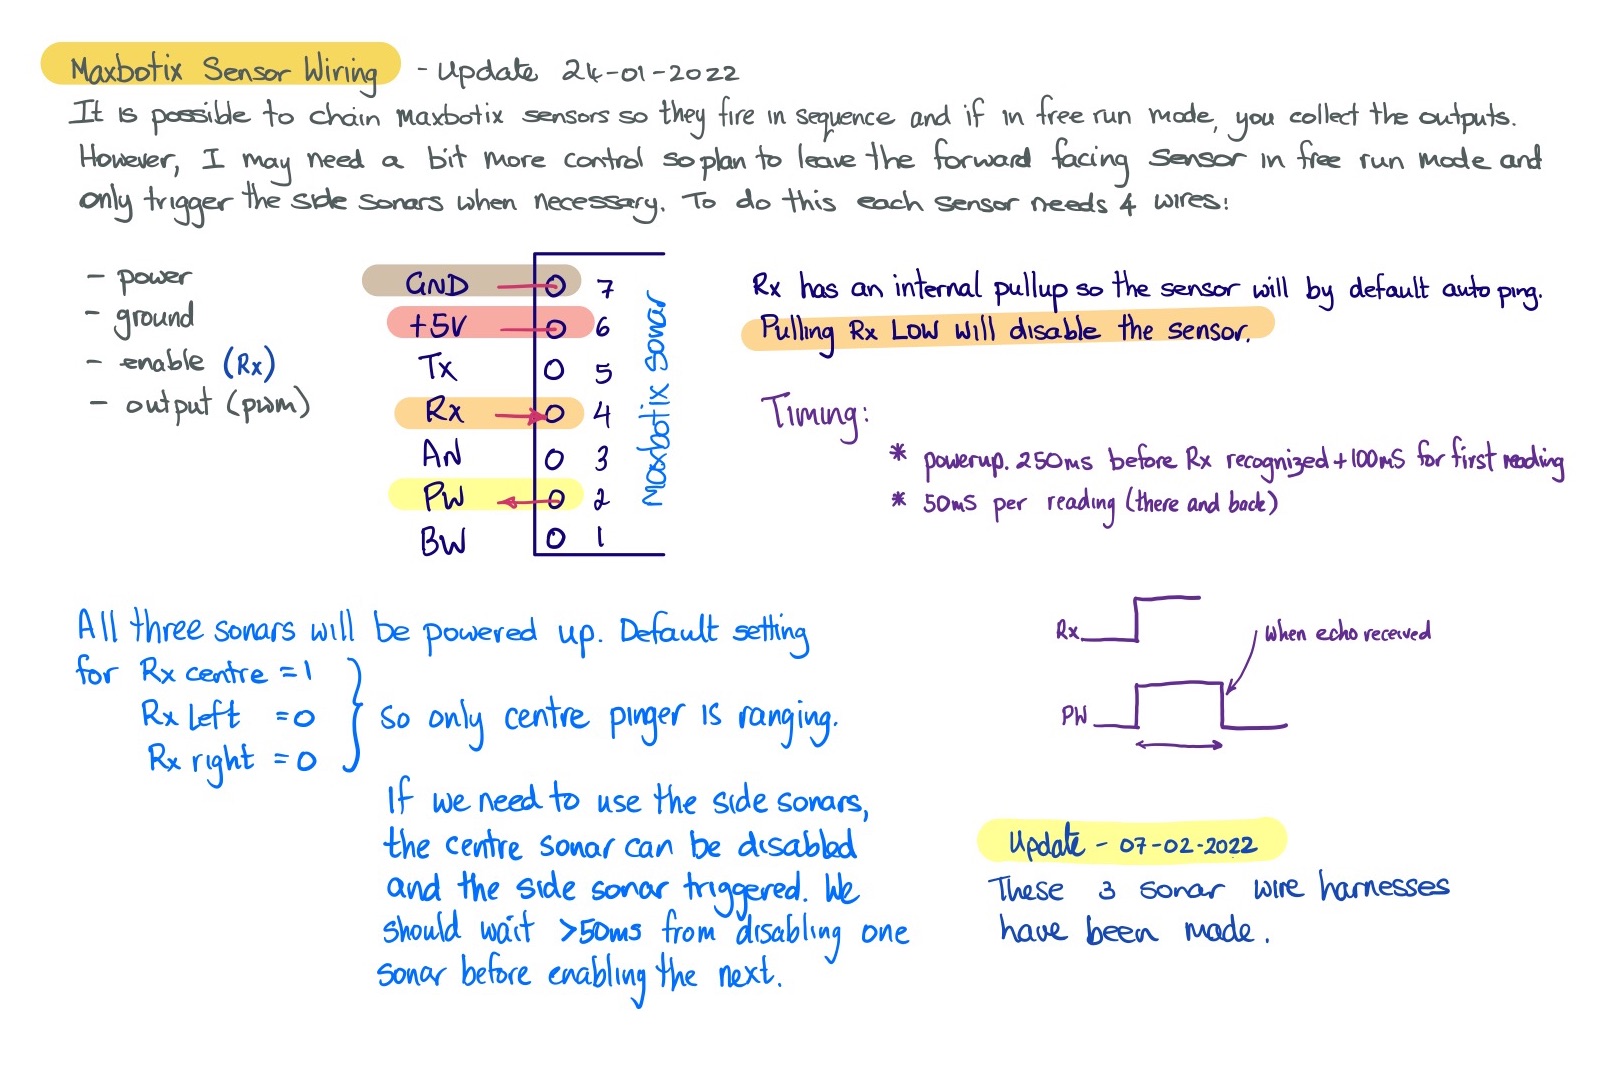 Maxbotix Sensor Wiring - Update 24-01-2022
It is possible to chain maxbotix sensors so they fire in sequence and if in free run mode, you collect the outputs.
However, I may need a bit more control so plan to leave the forward facing sensor in free run mode and
only trigger the side sonars when necessary. To do this each sensor needs 4 wires:
- power
- ground
- enable (Rx)
- output (pwm)
GND 7
+5V 6
Tx 5
Rx 4
AN 3
PW 2
BW 1
maxbotix sonar
Rx has an internal pullup so the sensor will by default auto ping.
Pulling Rx LOW will disable the sensor.
Timing:
* powerup. 250ms before Rx recognized + 100mS for first reading
* 50mS per reading (there and back)
All three sonars will be powered up. Default setting
for Rx centre = 1
Rx left = 0
Rx right = 0
so only centre pinger is ranging.
If we need to use the side sonars,
the centre sonar can be disabled
and the side sonar triggered. We
should wait >50ms from disabling one
sonar before enabling the next.
Rx
when echo received
PW
Update - 07-02-2022
These 3 sonar wire harnesses
have been made.